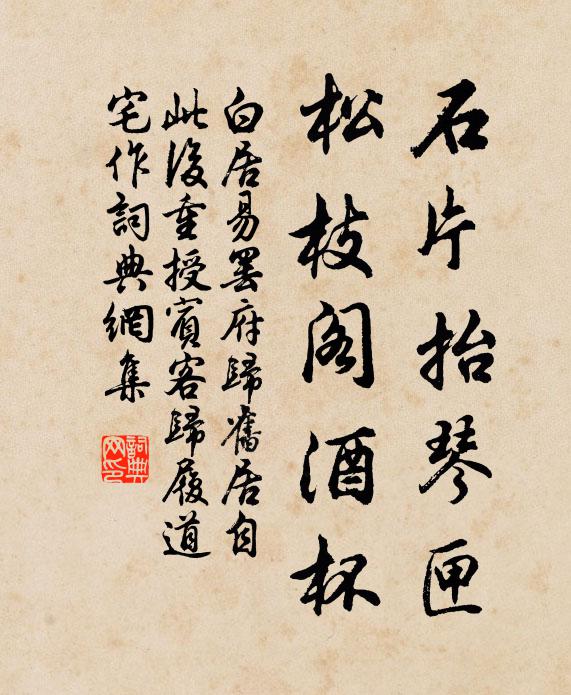 石片抬琴匣
松枝阁酒杯
白居易罢府歸舊居自
此後重授賓客歸履道
宅作詞典網集
詞典网印